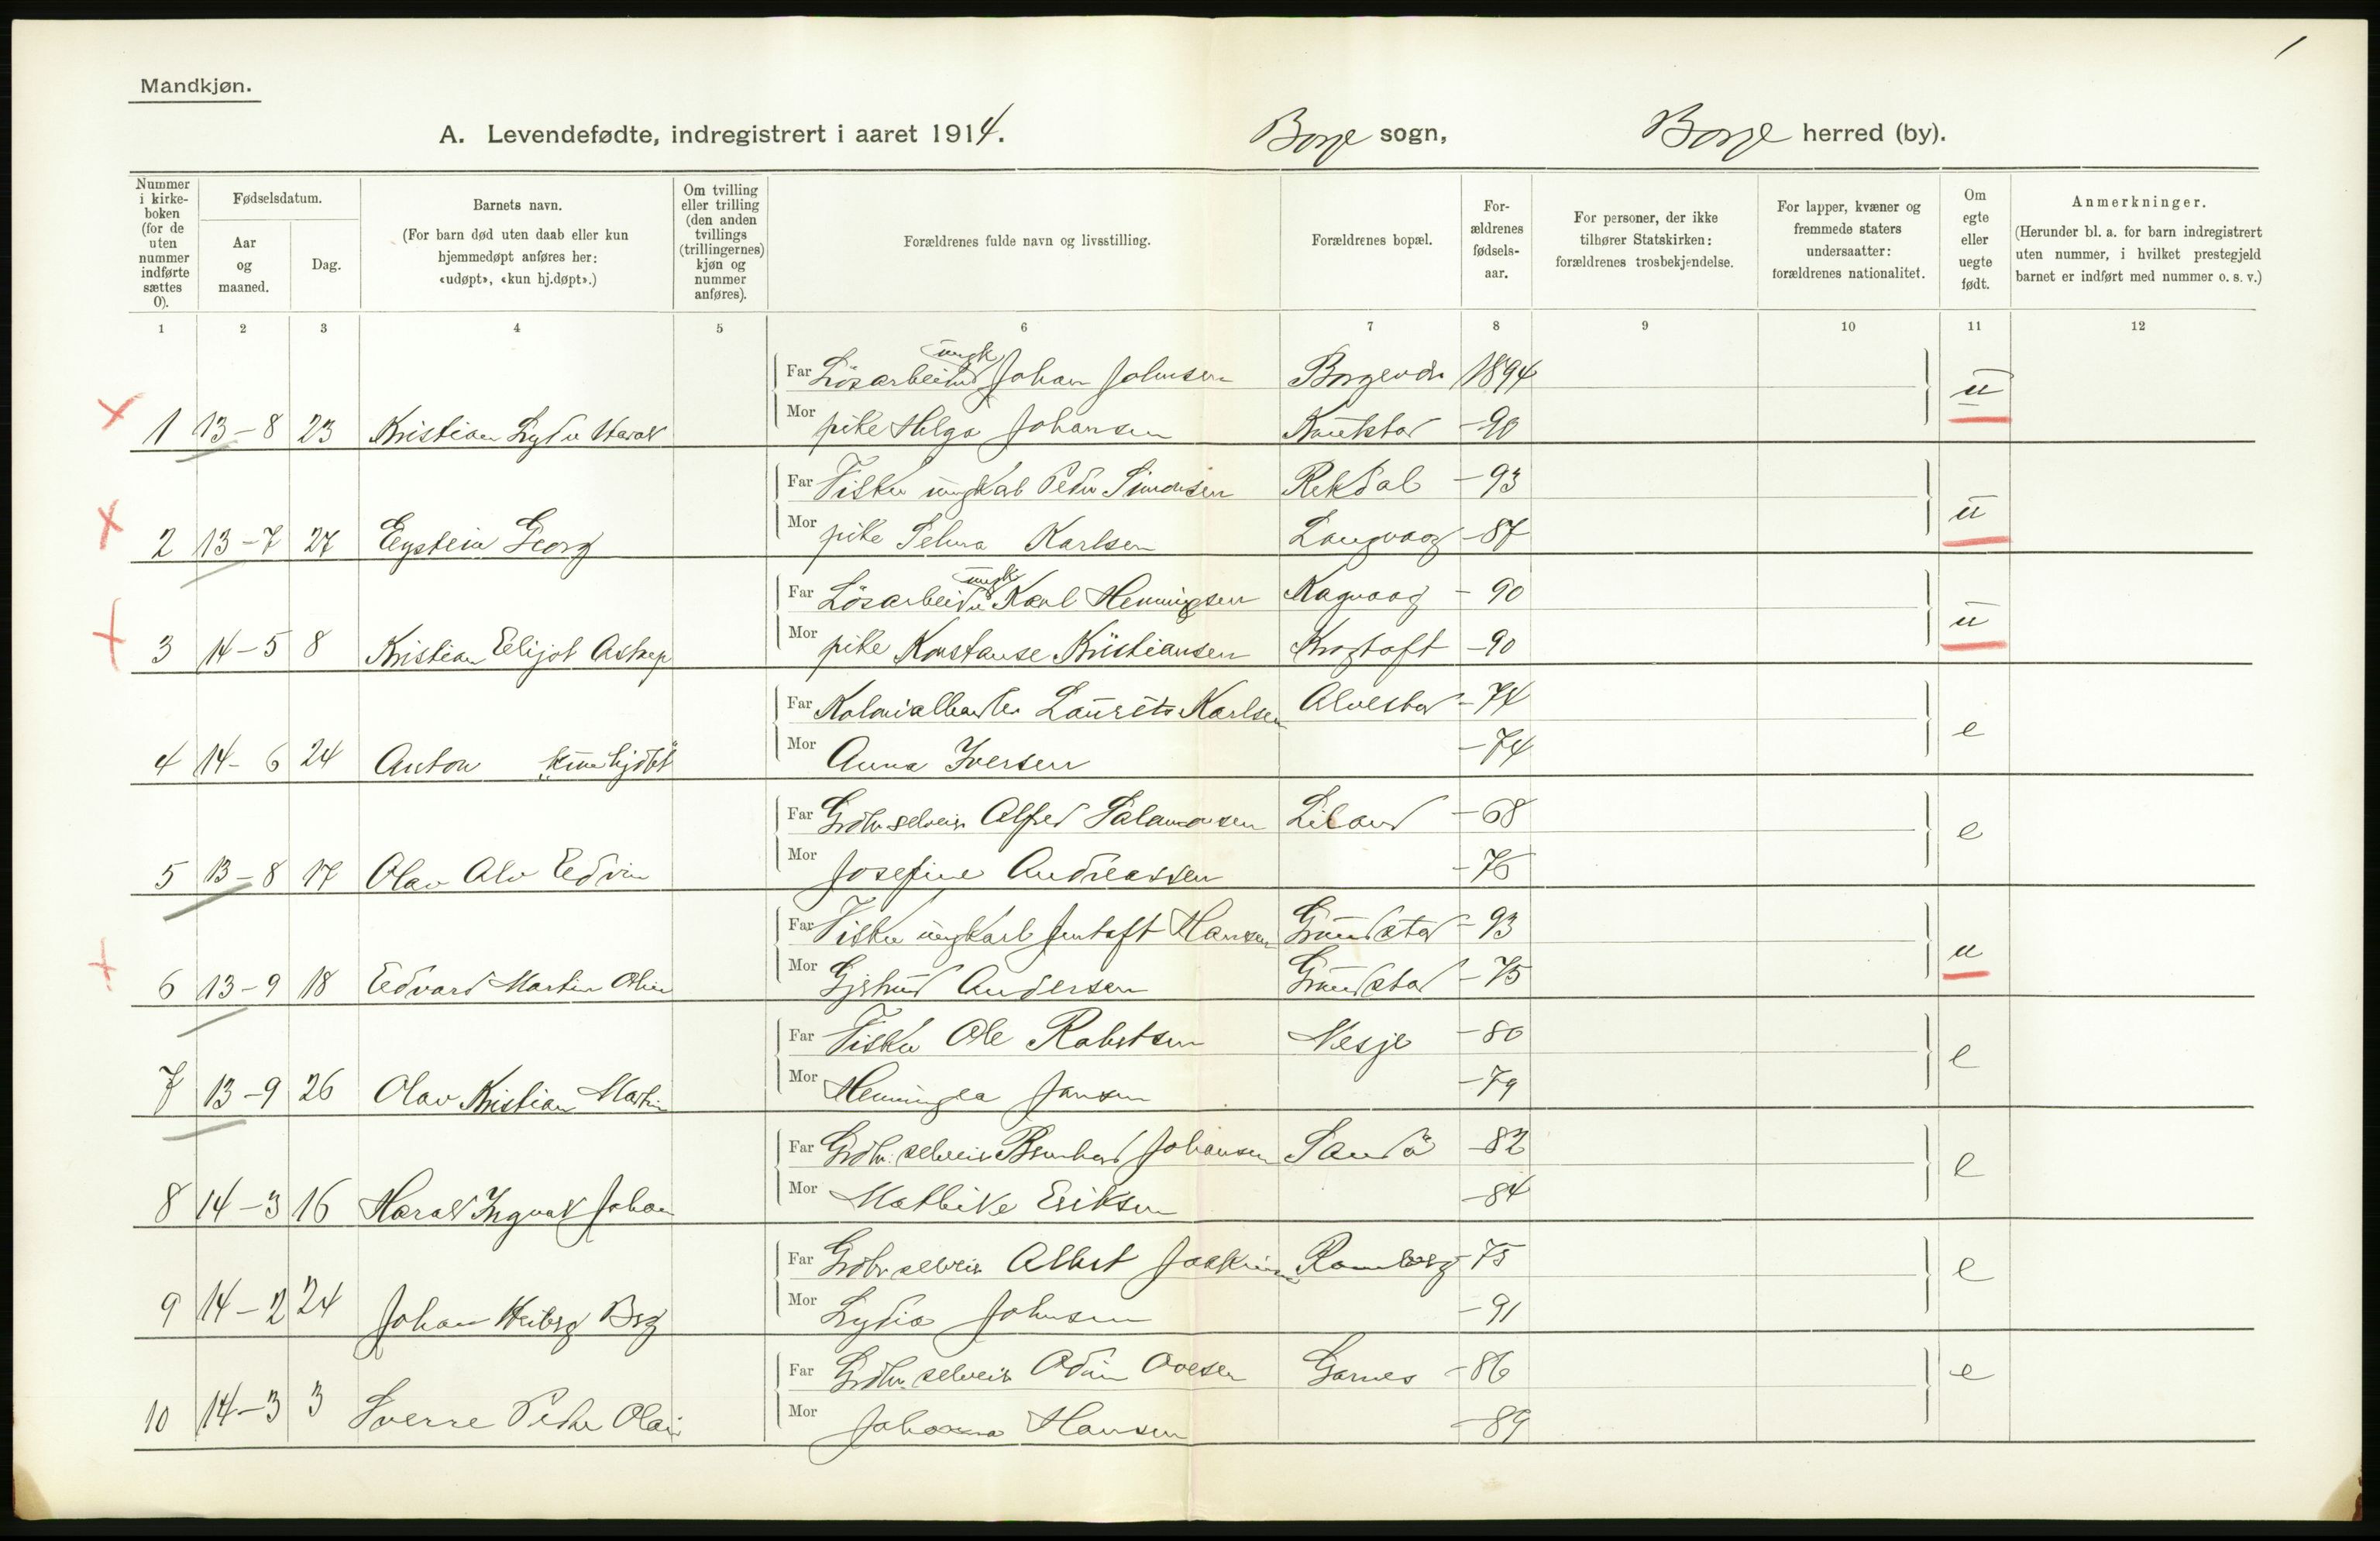 1
Mandkjøn.
A. Levendefødte, indregistrert i aaret 1914. Borge sogn, Borge herred (by).
Nummer i kirkeboken (for de uten nummer indførte sættes 0).
Fødselsdatum.
Aar og maaned.
Dag.
Barnets navn.
(For barn død uten daab eller kun hjemmedøpt anføres her: «udøpt», «kun hj.døpt».)
Om tvilling eller trilling (den anden tvillings (trillingernes) kjøn og nummer anføres).
Forældrenes fulde navn og livsstilling.
Forældrenes bopæl.
For-
ældrenes
fødsels-
aar.
For personer, der ikke
tilhører Statskirken:
forældrenes trosbekjendelse.
For lapper, kvæner og
fremmede staters
undersaatter:
forældrenes nationalitet.
Om
egte
eller
uegte
født.
Anmerkninger.
(Herunder bl. a. for barn indregistrert
uten nummer, i hvilket prestegjeld
barnet er indført med nummer o. s. v.)
1 2 3 4 5 6 7 8 9 10 11 12
Far Lösarbeider ungk Johan Johnsen 1894 u
1 13-8 23 Kristian Mor pike Helga Johansen -90
Far Fisker ungkarl Peder Simonsen Rekdal -93 u
2 13-7 27 Eystein Georg Mor pike Selma Karlsen Langvaag -87
Far Lösarbeider ungk Karl Henningsen -90 u
3 14-5 8 Kristian Mor pike Konstanse Kristiansen Krogtoft -90
Far Kolonialhandler Laurits Karlsen Alvestad -74 e
4 14-6 24 Anton "kun hjdöbt" Mor Anna Iversen -74
Far Grdbr selveier Alfred Salamonsen Liland -68 e
5 13-8 17 Olav Alv Edvin Mor Josefine Andreassen -76
Far Fisker ungkarl Jentoft Hansen Grundstad -93 u
6 13-9 18 Edvard Martin Mor Gjertrud Andersen Grundstad -75
Far Fisker Ole Robertsen Nesje -80 e
7 13-9 26 Olav Kristian Martin Mor Henningea Jansen -79
Far Grdbr. selveier Bernhard Johansen Sandö -82 e
8 14-3 16 Harald Ingvald Johan Mor Mathilde Eriksen -84
Far Grdbr selveier Albert Ramberg -75 e
9 14-2 24 Johan Heiberg Berg Mor Lydia Johnsen -91
Far Grdbr. selveier Odin Ovesen Garnes -86 e
10 14-3 3 Sverre Peder Olai Mor Johanna Hansen -89